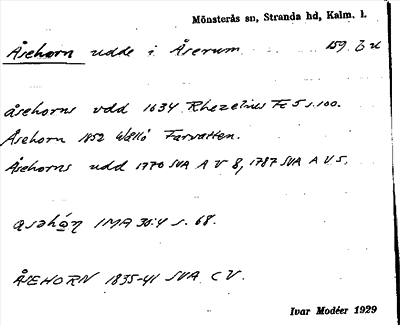 Mönsterås sn, Stranda hd, Kalm. l.
Åsehorn udde i Åserum 159.
åsehorns udd 1634 Rhezelius Fc 5 s. 100.
Åsehorn 1852 Wållö Farvatten.
Åsehorns udd 1770 SVA A V 8, 1787 SVA A V 5.
IMA 30:4 s. 68.
ÅSEHORN 1835-41 SVA C V.
Ivar Modéer 1929